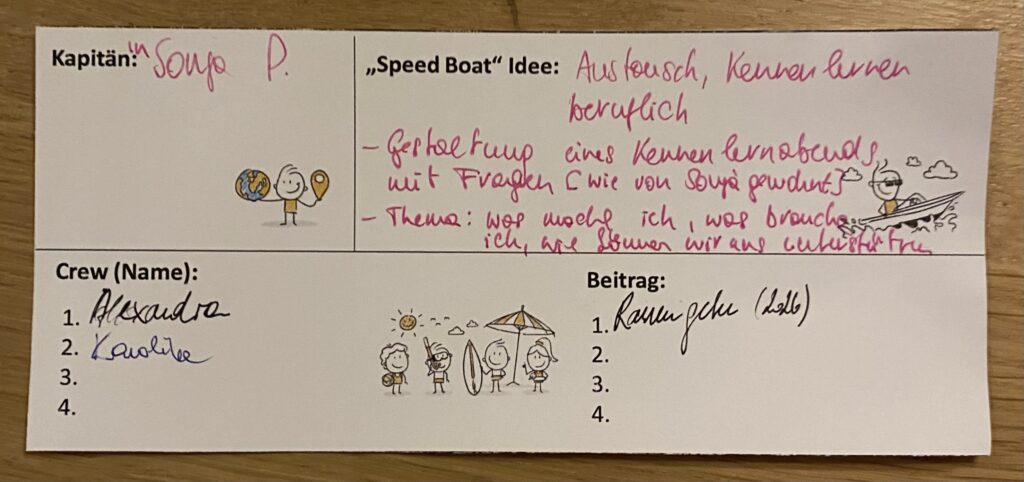 Kapitän:in Sonja P.
„Speed Boat“ Idee: Austausch, Kennenlernen
beruflich
- Gestaltung eines Kennenlernabends
mit Fragen [wie von Sonja gewohnt]
- Thema: was mache ich, was brauche
ich, wie können wir uns unterstützen
Crew (Name):
1. Alexandra
2. Karolina
3.
4.
Beitrag:
1. (2026)
2.
3.
4.